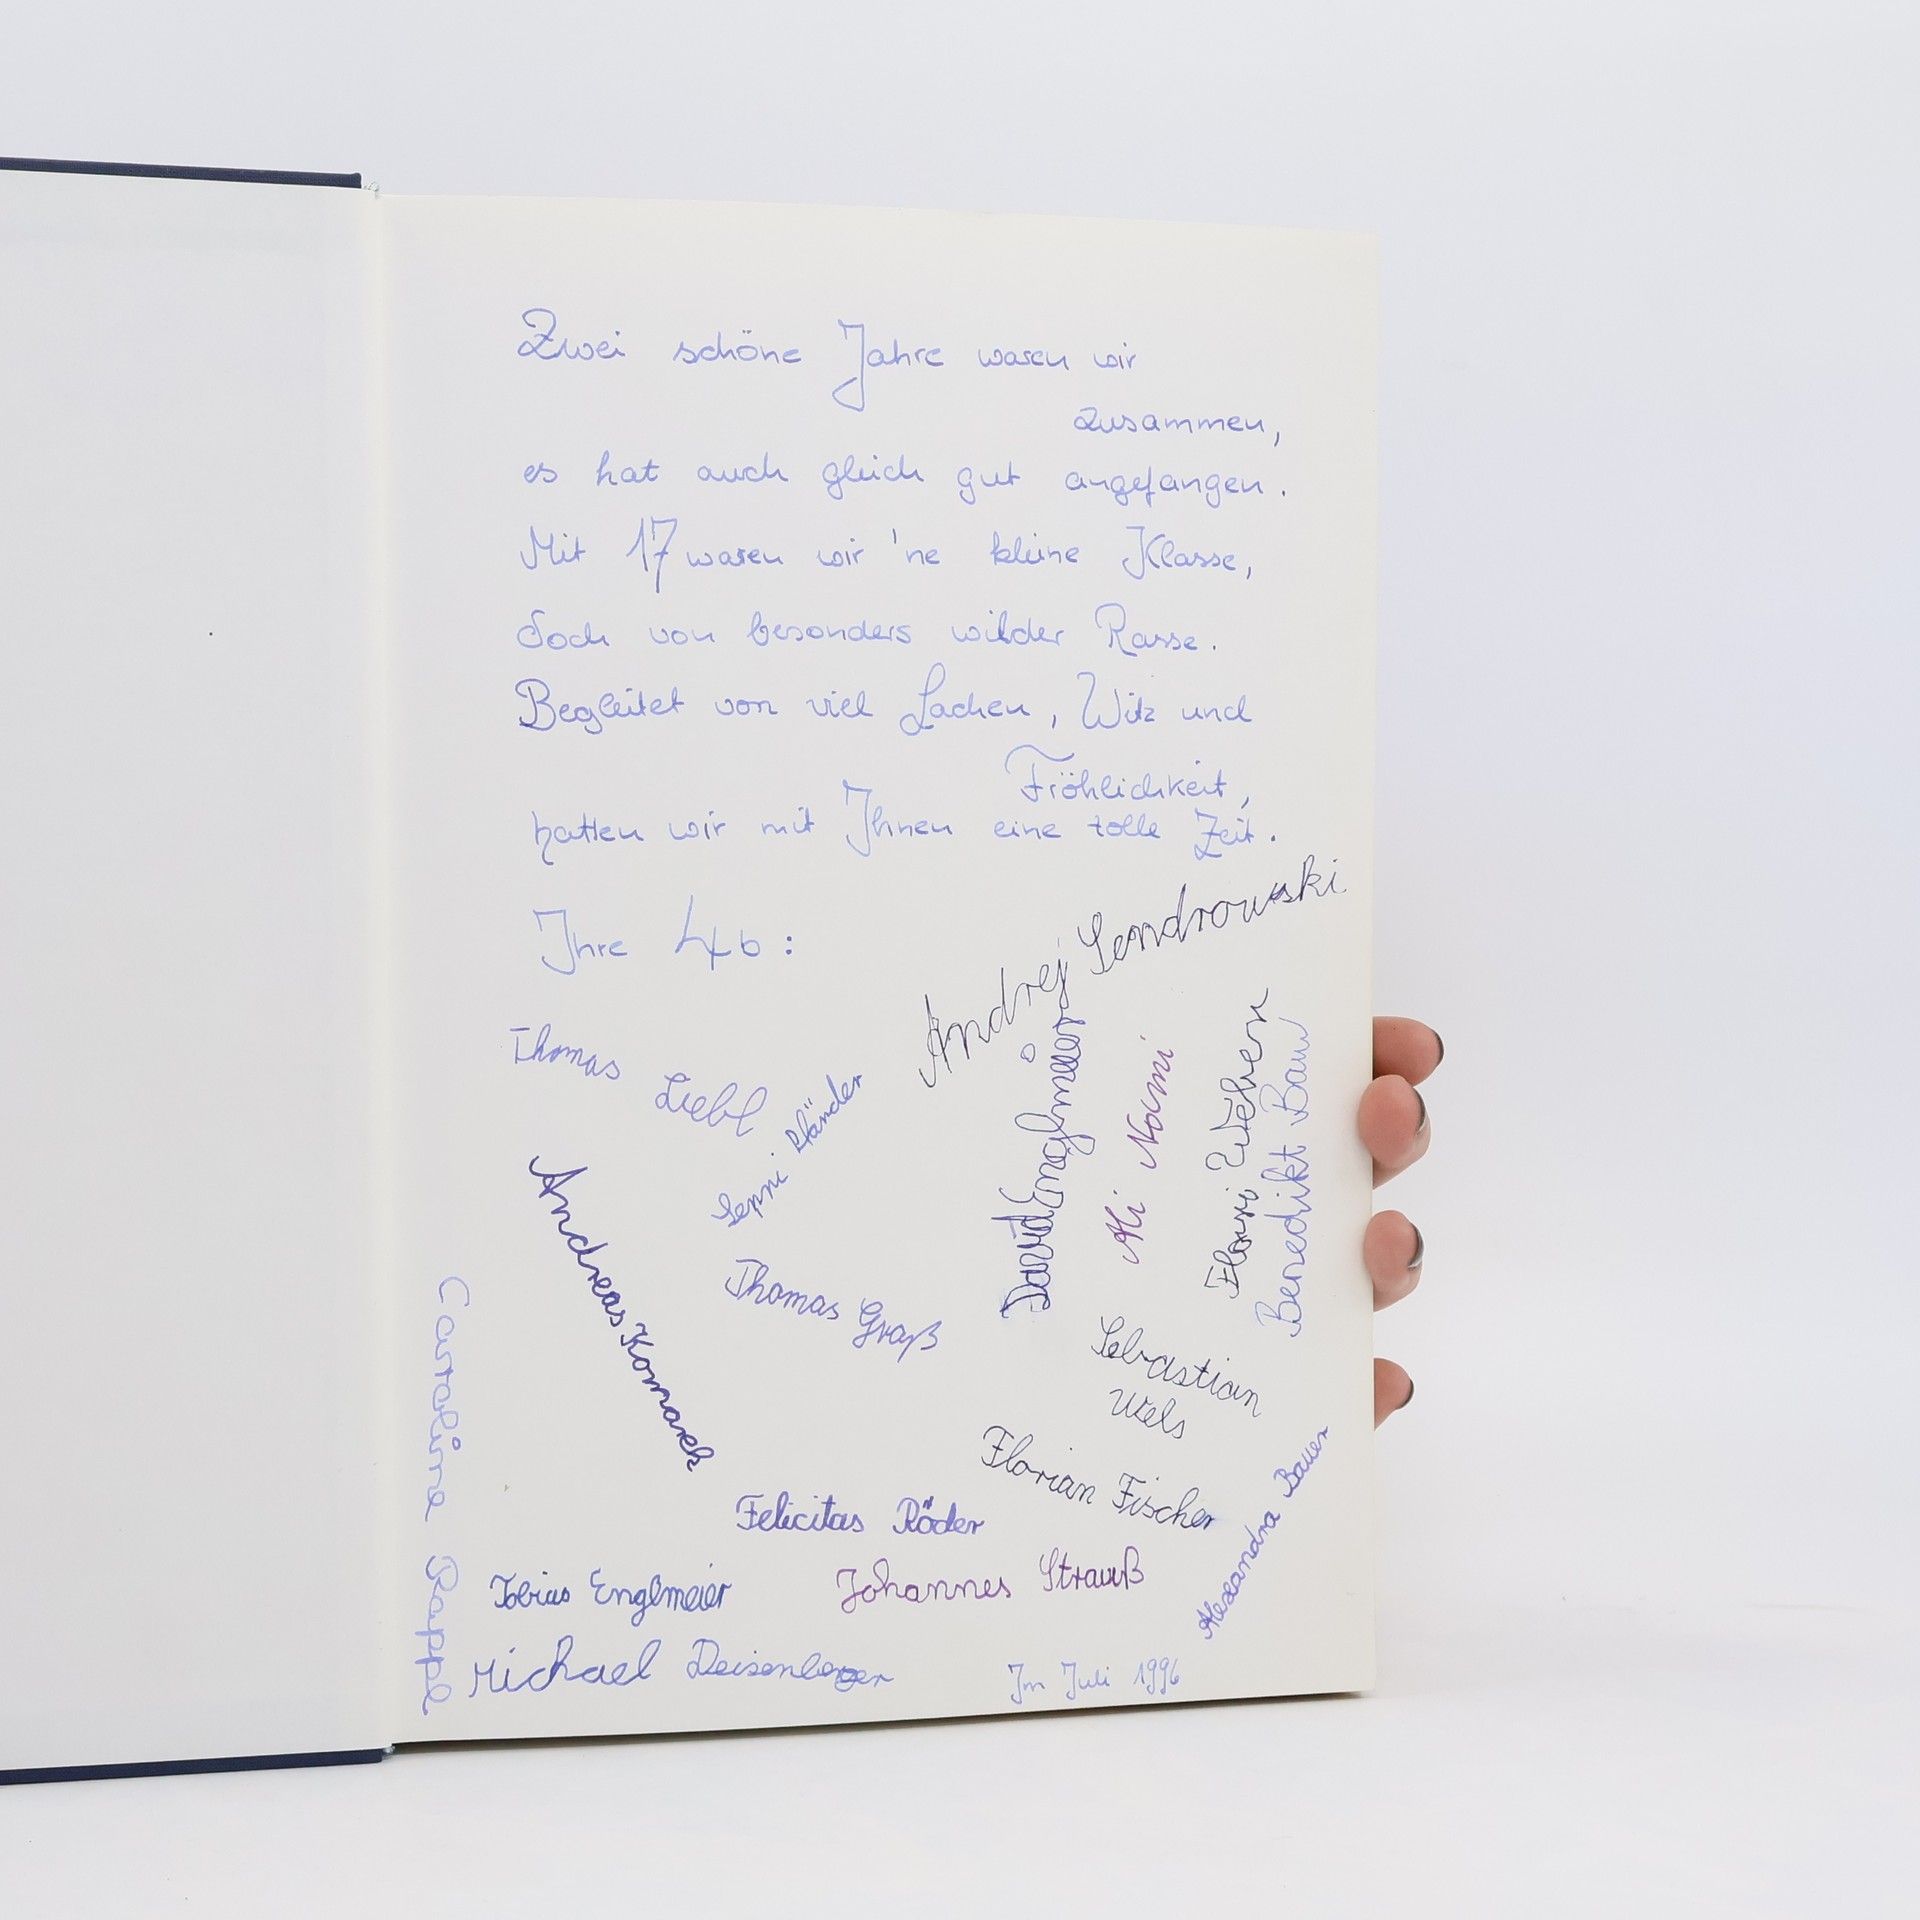 Zwei schöne Jahre waren wir
zusammen,
es hat auch gleich gut angefangen.
Mit 17 waren wir 'ne kleine Klasse,
doch von besonders wilder Rasse.
Begleitet von viel Lachen, Witz und
Fröhlichkeit,
hatten wir mit Ihnen eine tolle Zeit.
Ihre 4b:
Andrej Sendrowski
Thomas Liebl
Seppi Ständer
David Englmeier
Ali
Benedikt
Andreas Komarek
Thomas Graß
Sebastian
Wels
Florian Fischer
Alexandra Bauer
Caroline Rappl
Felicitas Röder
Tobias Englmeier
Johannes Strauß
Michael Deisenberger
Im Juli 1996